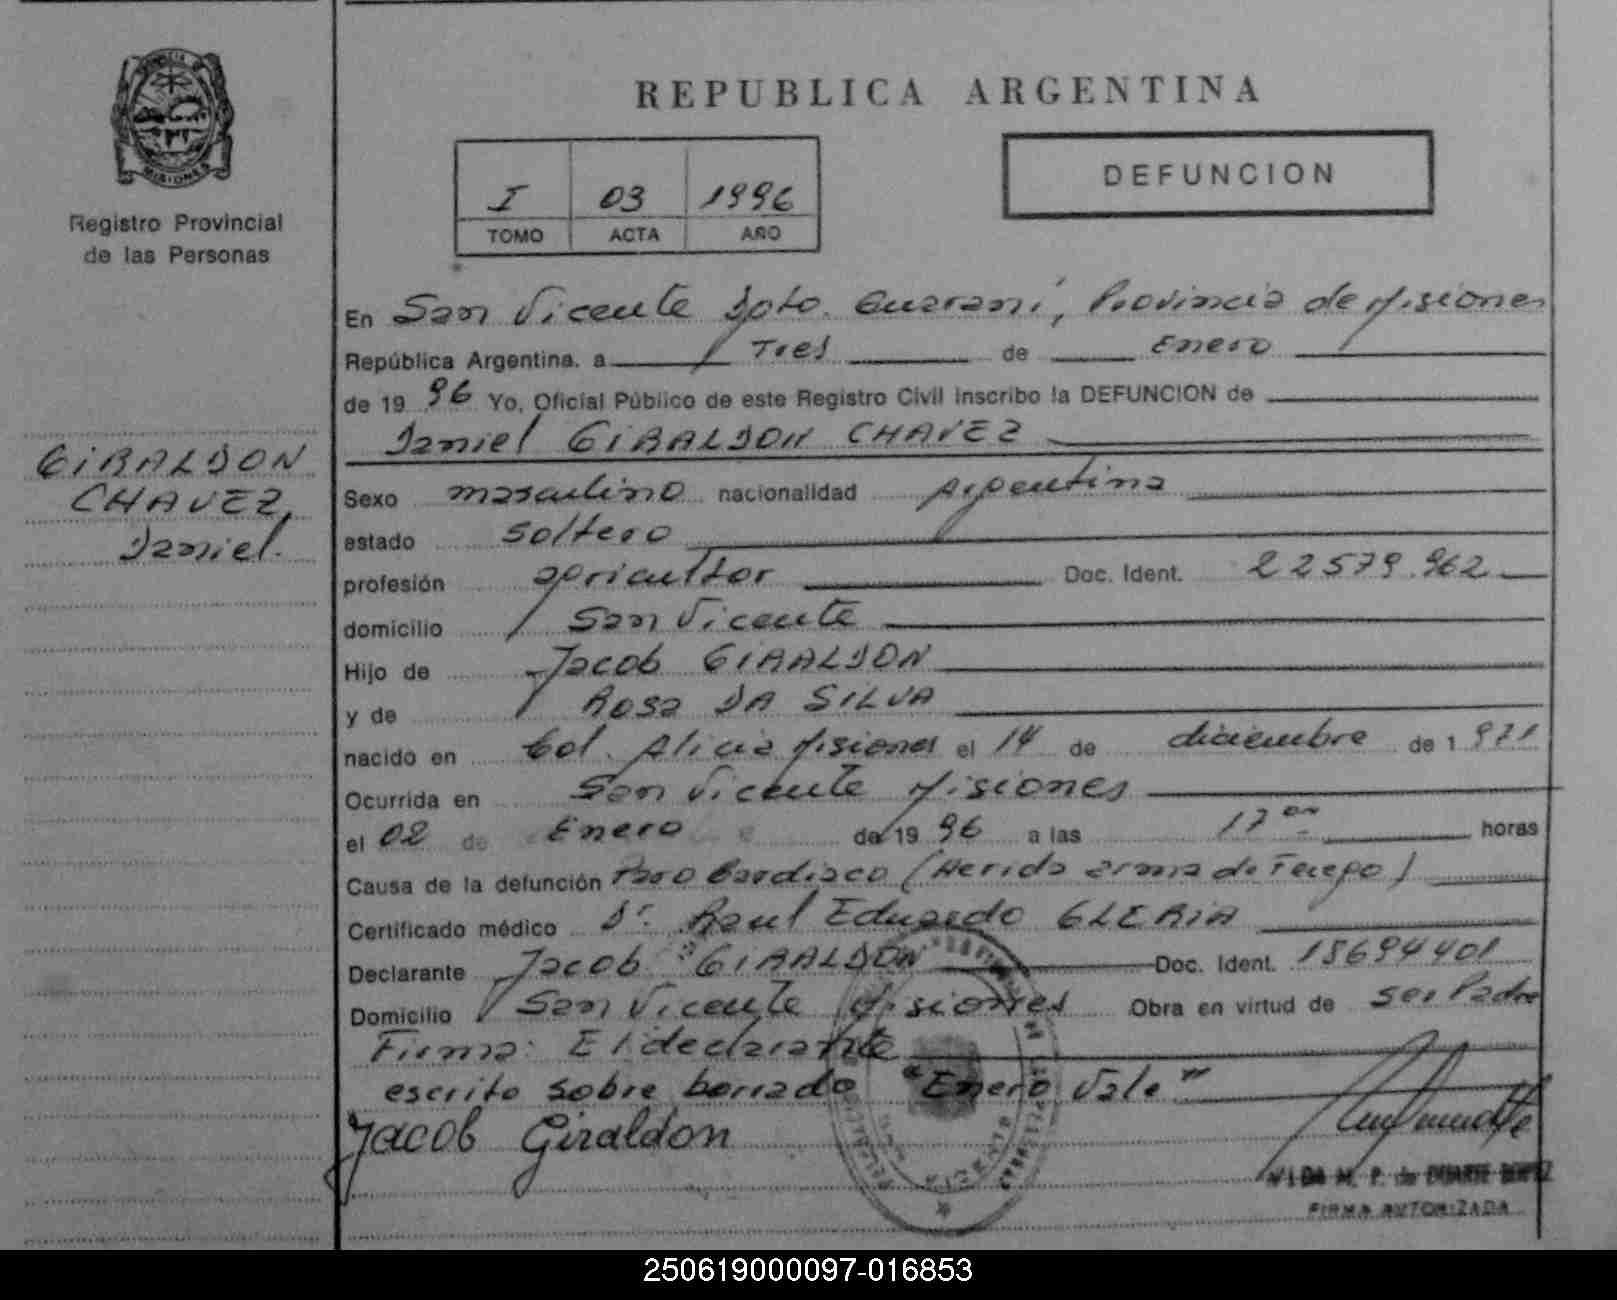 MISIONES
Registro Provincial
de las Personas
REPUBLICA ARGENTINA
I 03 1996
TOMO ACTA AÑO
DEFUNCION
GIRALDON
CHAVEZ,
Daniel.
En San Vicente Dpto. Guaraní, Provincia de Misiones
República Argentina, a Tres de Enero
de 19 96 Yo, Oficial Público de este Registro Civil inscribo la DEFUNCION de
Daniel GIRALDON CHAVEZ
Sexo masculino nacionalidad Argentina
estado soltero
profesión agricultor Doc. Ident. 22579.962
domicilio San Vicente
Hijo de Jacob GIRALDON
y de Rosa DA SILVA
nacido en Col. Alicia Misiones el 14 de diciembre de 1 971
Ocurrida en San Vicente Misiones
el 02 de Enero de 19 96 a las 17 horas
Causa de la defunción Paro Cardiaco (Herida arma de Fuego)
Certificado médico Dr. Raul Eduardo GLERIA
Declarante Jacob GIRALDON Doc. Ident. 18694401
Domicilio San Vicente Misiones Obra en virtud de ser Padre
Firma: El declarante
escrito sobre borrado "Enero Vale"
Jacob Giraldon
FIRMA AUTORIZADA
250619000097-016853